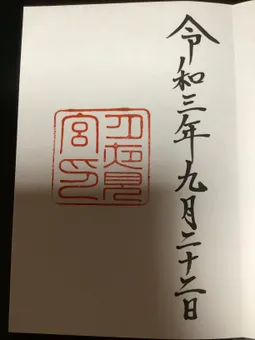 令和三年九月二十二日
月夜見
宮印